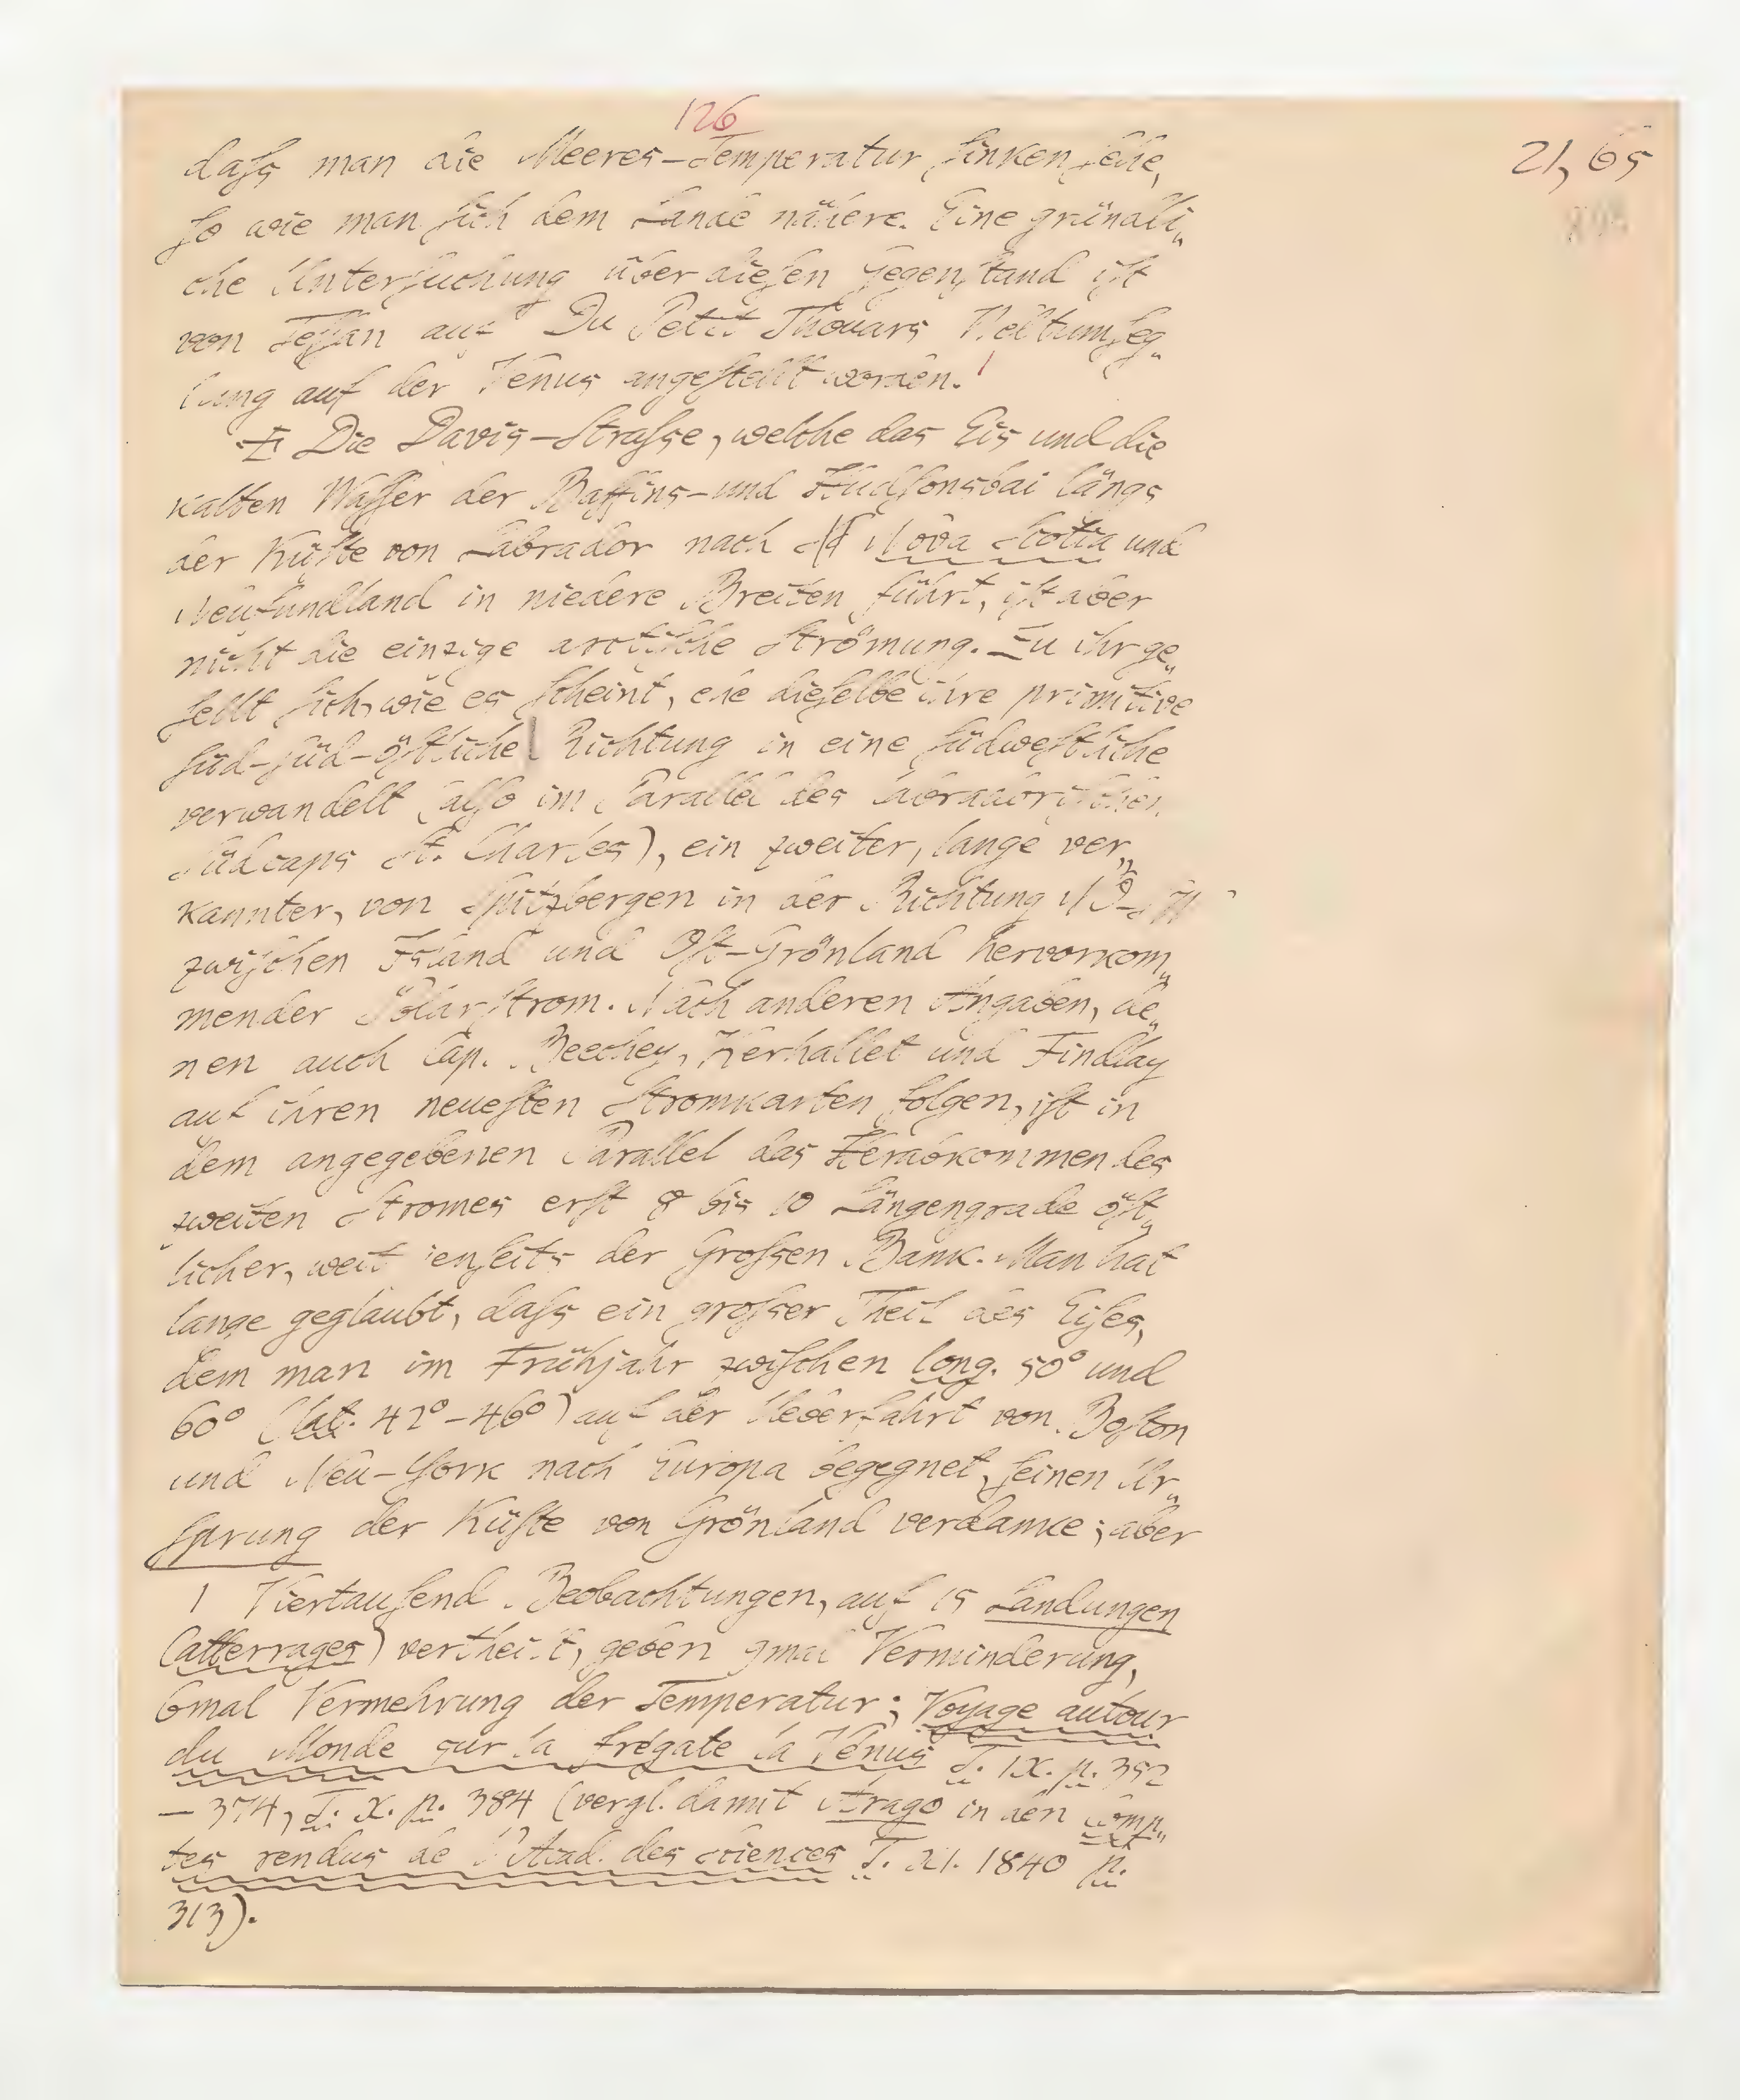 126
21, 65
daſs man die Meeres-Temperatur ſinken ſehe,
ſo wie man ſich dem Lande nähere. Eine gründli„
che Unterſuchung über dieſen Gegenſtand iſt
von Teſſan auf Du Petit Thouars Weltumſeg„
lung auf der Venus angeſtellt worden. 1
Die Davis-Straſse, welche das Eis und die
kalten Waſſer der Baffins- und Hudſonsbai längs
der Küſte von Labrador nach Nova Scotia und
Neufundland in niedere Breiten führt, iſt aber
nicht die einzige arctiſche Strömung. Zu ihr ge„
ſellt ſich, wie es ſcheint, ehe dieſelbe ihre primitive
ſüd-ſüd-öſtliche Richtung in eine ſüdweſtliche
verwandelt (alſo im Parallel des labradoriſchen
Südcaps St. Charles), ein zweiter, lange ver„
kannter, von Spitzbergen in der Richtung NO-SW
zwiſchen Island und Oſt-Grönland hervorkom„
mender Polarſtrom. Nach anderen Angaben, de„
nen auch Cap. Beechey, Kerhallet und Findlay
auf ihren neueſten Stromkarten folgen, iſt in
dem angegebenen Parallel das Herabkommen des
zweiten Stromes erſt 8 bis 10 Längengrade öſt„
licher, weit jenſeits der Groſsen Bank. Man hat
lange geglaubt, daſs ein groſser Theil des Eiſes,
dem man im Frühjahr zwiſchen long. 50° und
60° (lat. 42°-46°) auf der Ueberfahrt von Boſton
und Neu-York nach Europa begegnet, ſeinen Ur„
ſprung der Küſte von Grönland verdanke; aber
1 Viertauſend Beobachtungen, auf 15 Landungen
(atterrages) vertheilt, geben 9mal Verminderung,
6mal Vermehrung der Temperatur; Voyage autour
du Monde sur la frégate la Vénus T. IX. p. 352
— 374, T. X. p. 384 (vergl. damit Arago in den Comp„
tes rendus de l'Acad. des Sciences T. XI. 1840 p.
313).